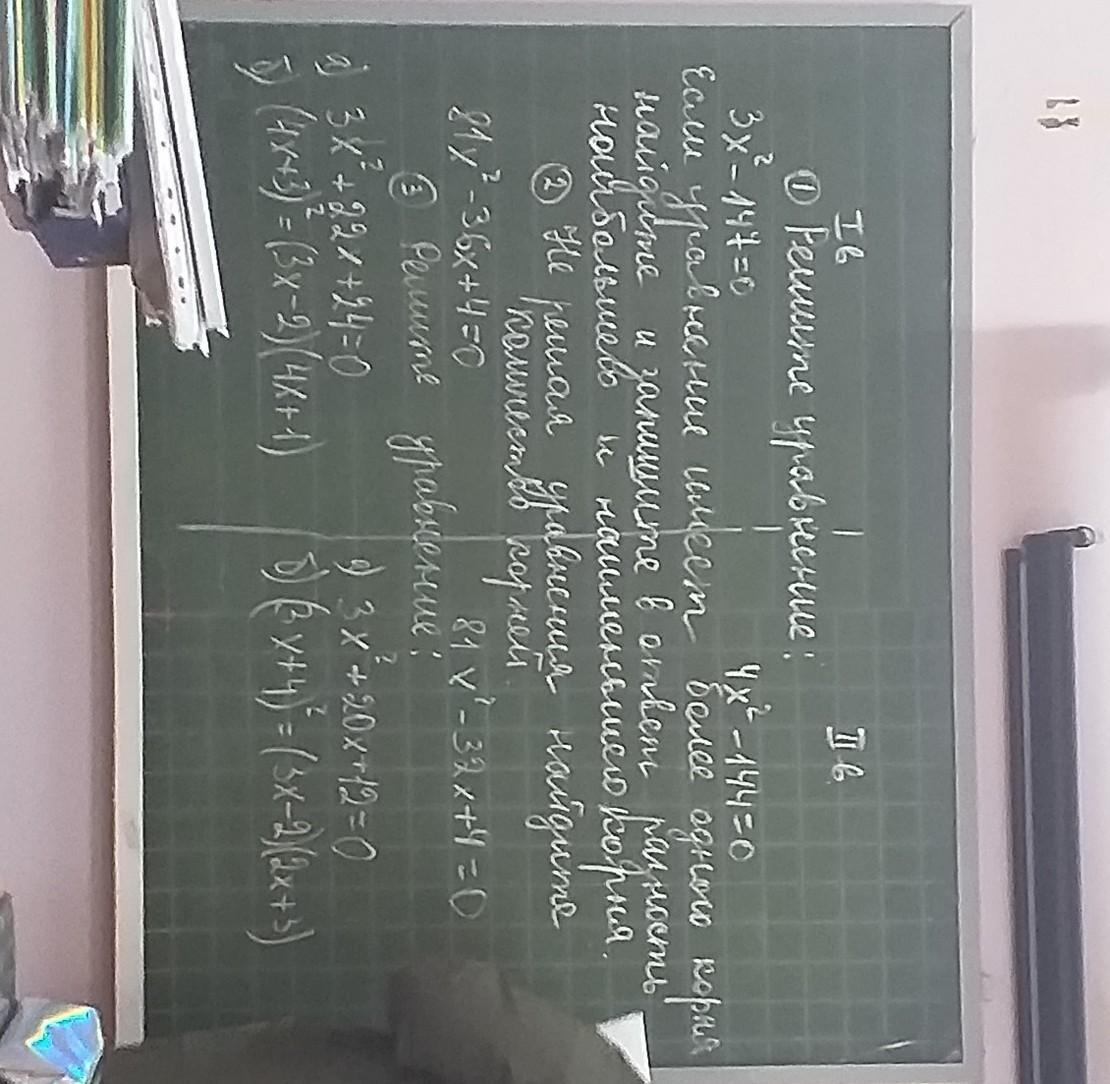 I в II в.
① Решите уравнение:
3x² - 147 = 0 4x² - 144 = 0
Если уравнение имеет более одного корня
найдите и запишите в ответ разность
наибольшего и наименьшего корня.
② Не решая уравнения найдите
количество корней
81x² - 36x + 4 = 0 81x² - 37x + 4 = 0
③ Решите уравнение:
а) 3x² + 22x + 24 = 0 а) 3x² + 20x + 12 = 0
б) (4x+3)² = (3x-2)(4x+1) б) (3x+4)² = (5x-2)(2x+3)